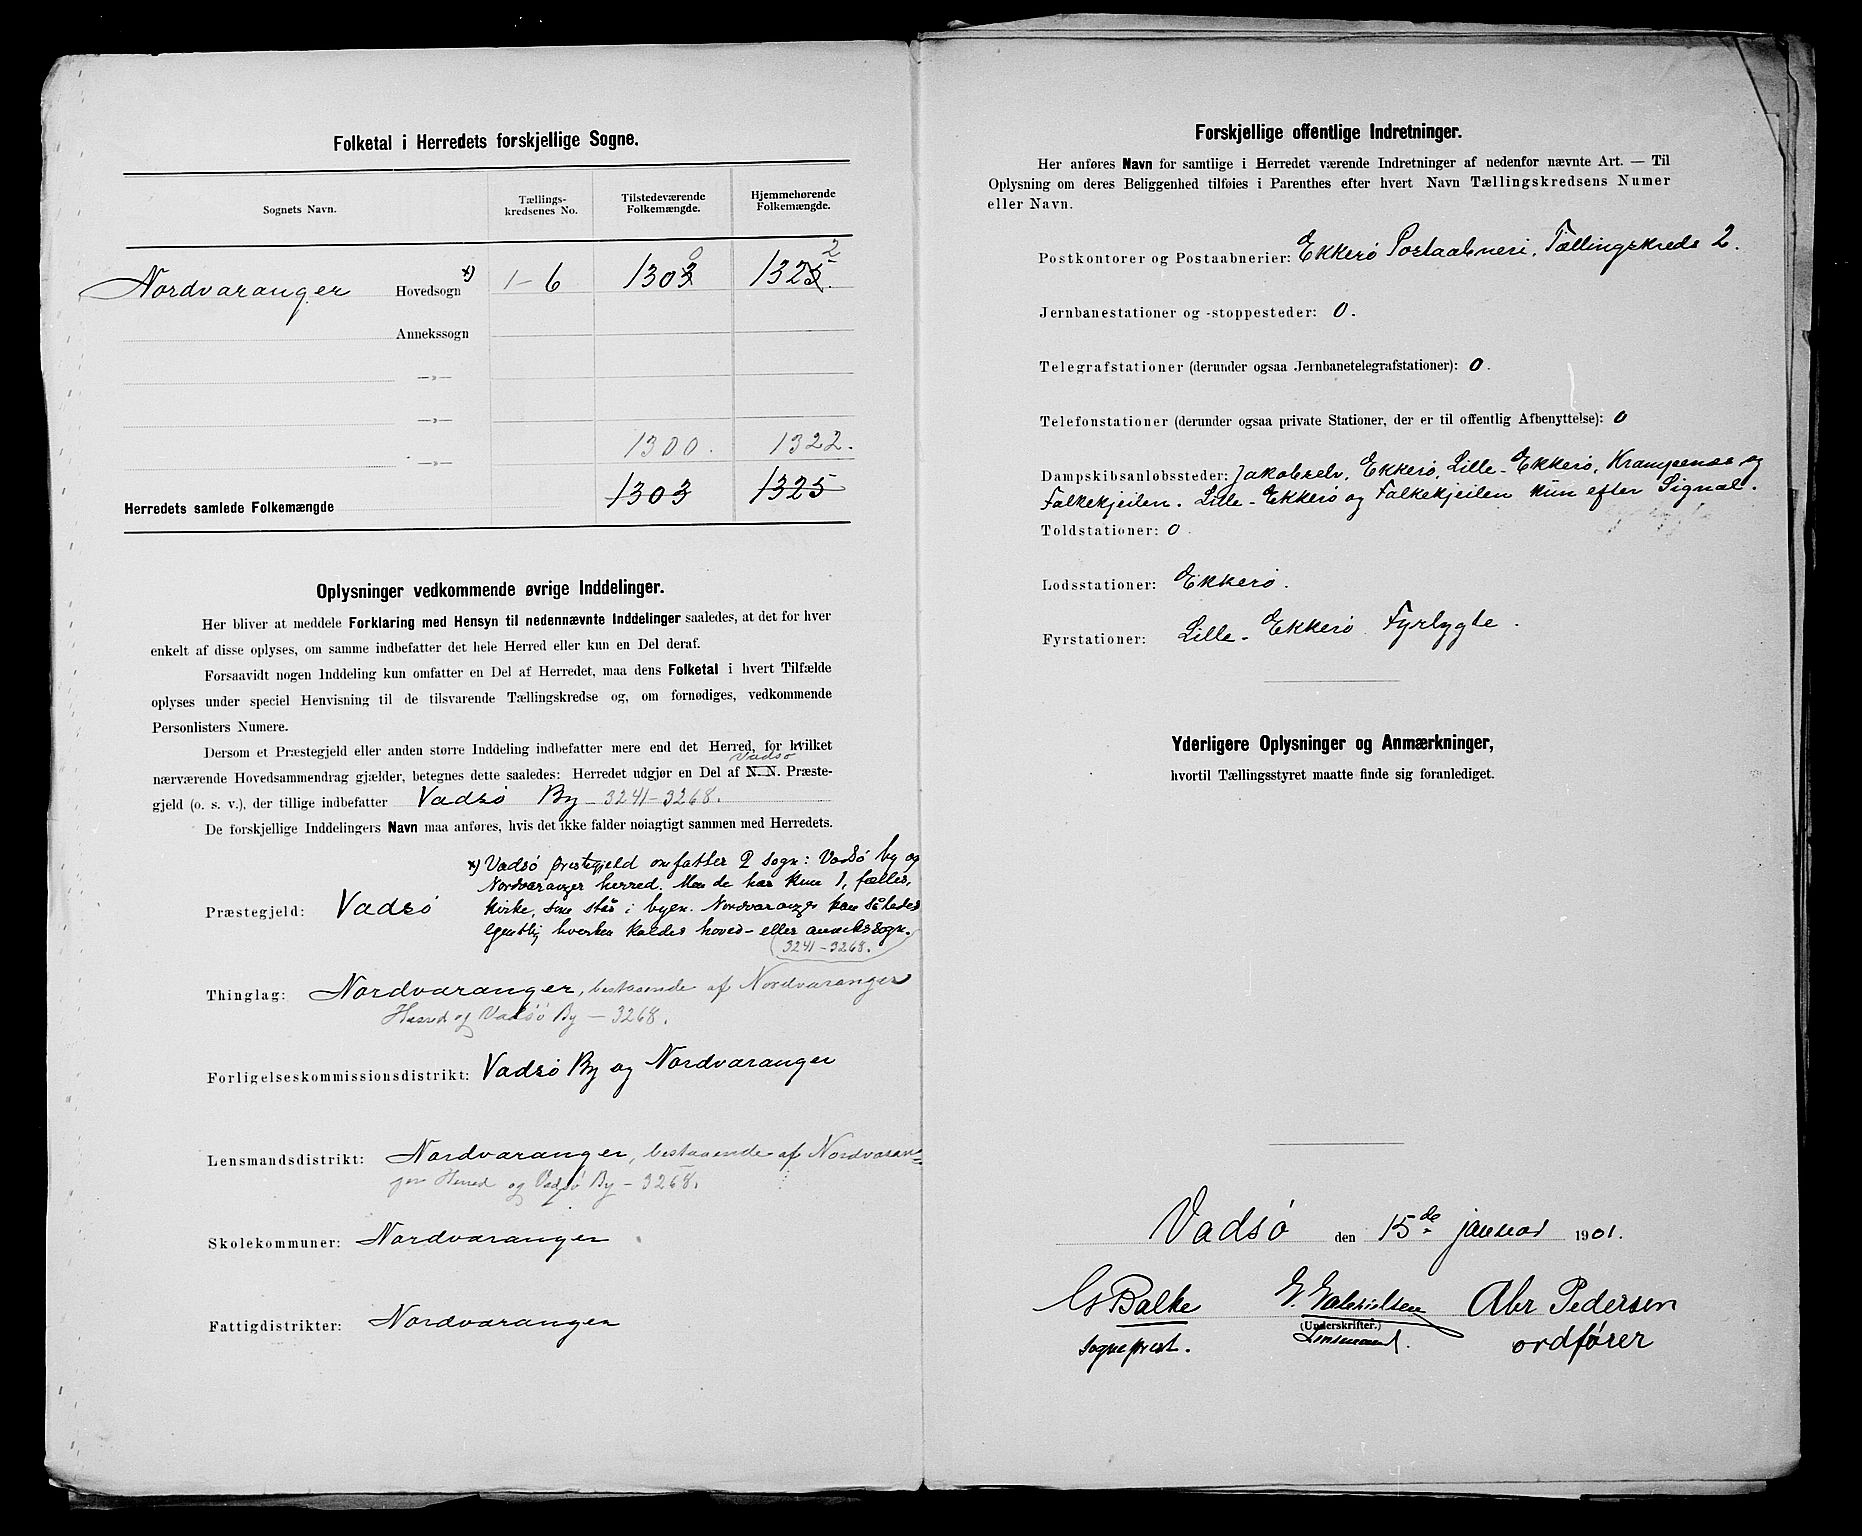 Folketal i Herredets forskjellige Sogne.
Sognets Navn. Tællings-kredsenes No. Tilstedeværende Folkemængde. Hjemmehørende Folkemængde.
Nordvaranger Hovedsogn x) 1-6 1303 0 1325 2
Annekssogn
—»—
—»—
1300. 1322.
—»—
Herredets samlede Folkemængde 1303 1325
Oplysninger vedkommende øvrige Inddelinger.
Her bliver at meddele Forklaring med Hensyn til nedennævnte Inddelinger saaledes, at det for hver
enkelt af disse oplyses, om samme indbefatter det hele Herred eller kun en Del deraf.
Forsaavidt nogen Inddeling kun omfatter en Del af Herredet, maa dens Folketal i hvert Tilfælde
oplyses under speciel Henvisning til de tilsvarende Tællingskredse og, om fornødiges, vedkommende
Personlisters Numere.
Dersom et Præstegjeld eller anden større Inddeling indbefatter mere end det Herred, for hvilket
Vadsø
nærværende Hovedsammendrag gjælder, betegnes dette saaledes: Herredet udgjør en Del af N. N. Præste-
gjeld (o. s. v.), der tillige indbefatter Vadsø By - 3241-3268.
De forskjellige Inddelingers Navn maa anføres, hvis det ikke falder nøiagtigt sammen med Herredets.
x) Vadsø prestegjeld omfatter 2 sogn: Vadsø by og
Nordvaranger herred. Men de har kun 1, fælles,
Præstegjeld: Vadsø kirke, som står i byen. Nordvaranger kan således
egentlig hverken kaldes hoved- eller annekssogn.
3241-3268.
Thinglag: Nordvaranger, bestaaende af Nordvaranger
Herred og Vadsö By - 3268.
Forligelseskommissionsdistrikt: Vadsø By og Nordvaranger
Lensmandsdistrikt: Nordvaranger, bestaaende af Nordvaran-
ger Herred og Vadsö By - 3268.
Skolekommuner: Nordvaranger
Fattigdistrikter: Nordvaranger
Forskjellige offentlige Indretninger.
Her anføres Navn for samtlige i Herredet værende Indretninger af nedenfor nævnte Art. — Til
Oplysning om deres Beliggenhed tilføies i Parenthes efter hvert Navn Tællingskredsens Numer
eller Navn.
Postkontorer og Postaabnerier: Ekkerø Postaabneri, Tællingskreds 2.
Jernbanestationer og -stoppesteder: 0.
Telegrafstationer (derunder ogsaa Jernbanetelegrafstationer): 0.
Telefonstationer (derunder ogsaa private Stationer, der er til offentlig Afbenyttelse): 0
Dampskibsanløbssteder: Jakobselv, Ekkerø, Lille-Ekkerø, Krampenæs og
Falkekjeilen. Lille-Ekkerø og Falkekjeilen kun efter Signal.
Toldstationer: 0
Lodsstationer: Ekkerø.
Fyrstationer: Lille-Ekkerø Fyrlygte.
Yderligere Oplysninger og Anmærkninger,
hvortil Tællingsstyret maatte finde sig foranlediget.
Vadsø den 15de januar 1901.
G Balke Abr Pedersen
(Underskrifter.)
sogneprest. Lensmand. ordfører